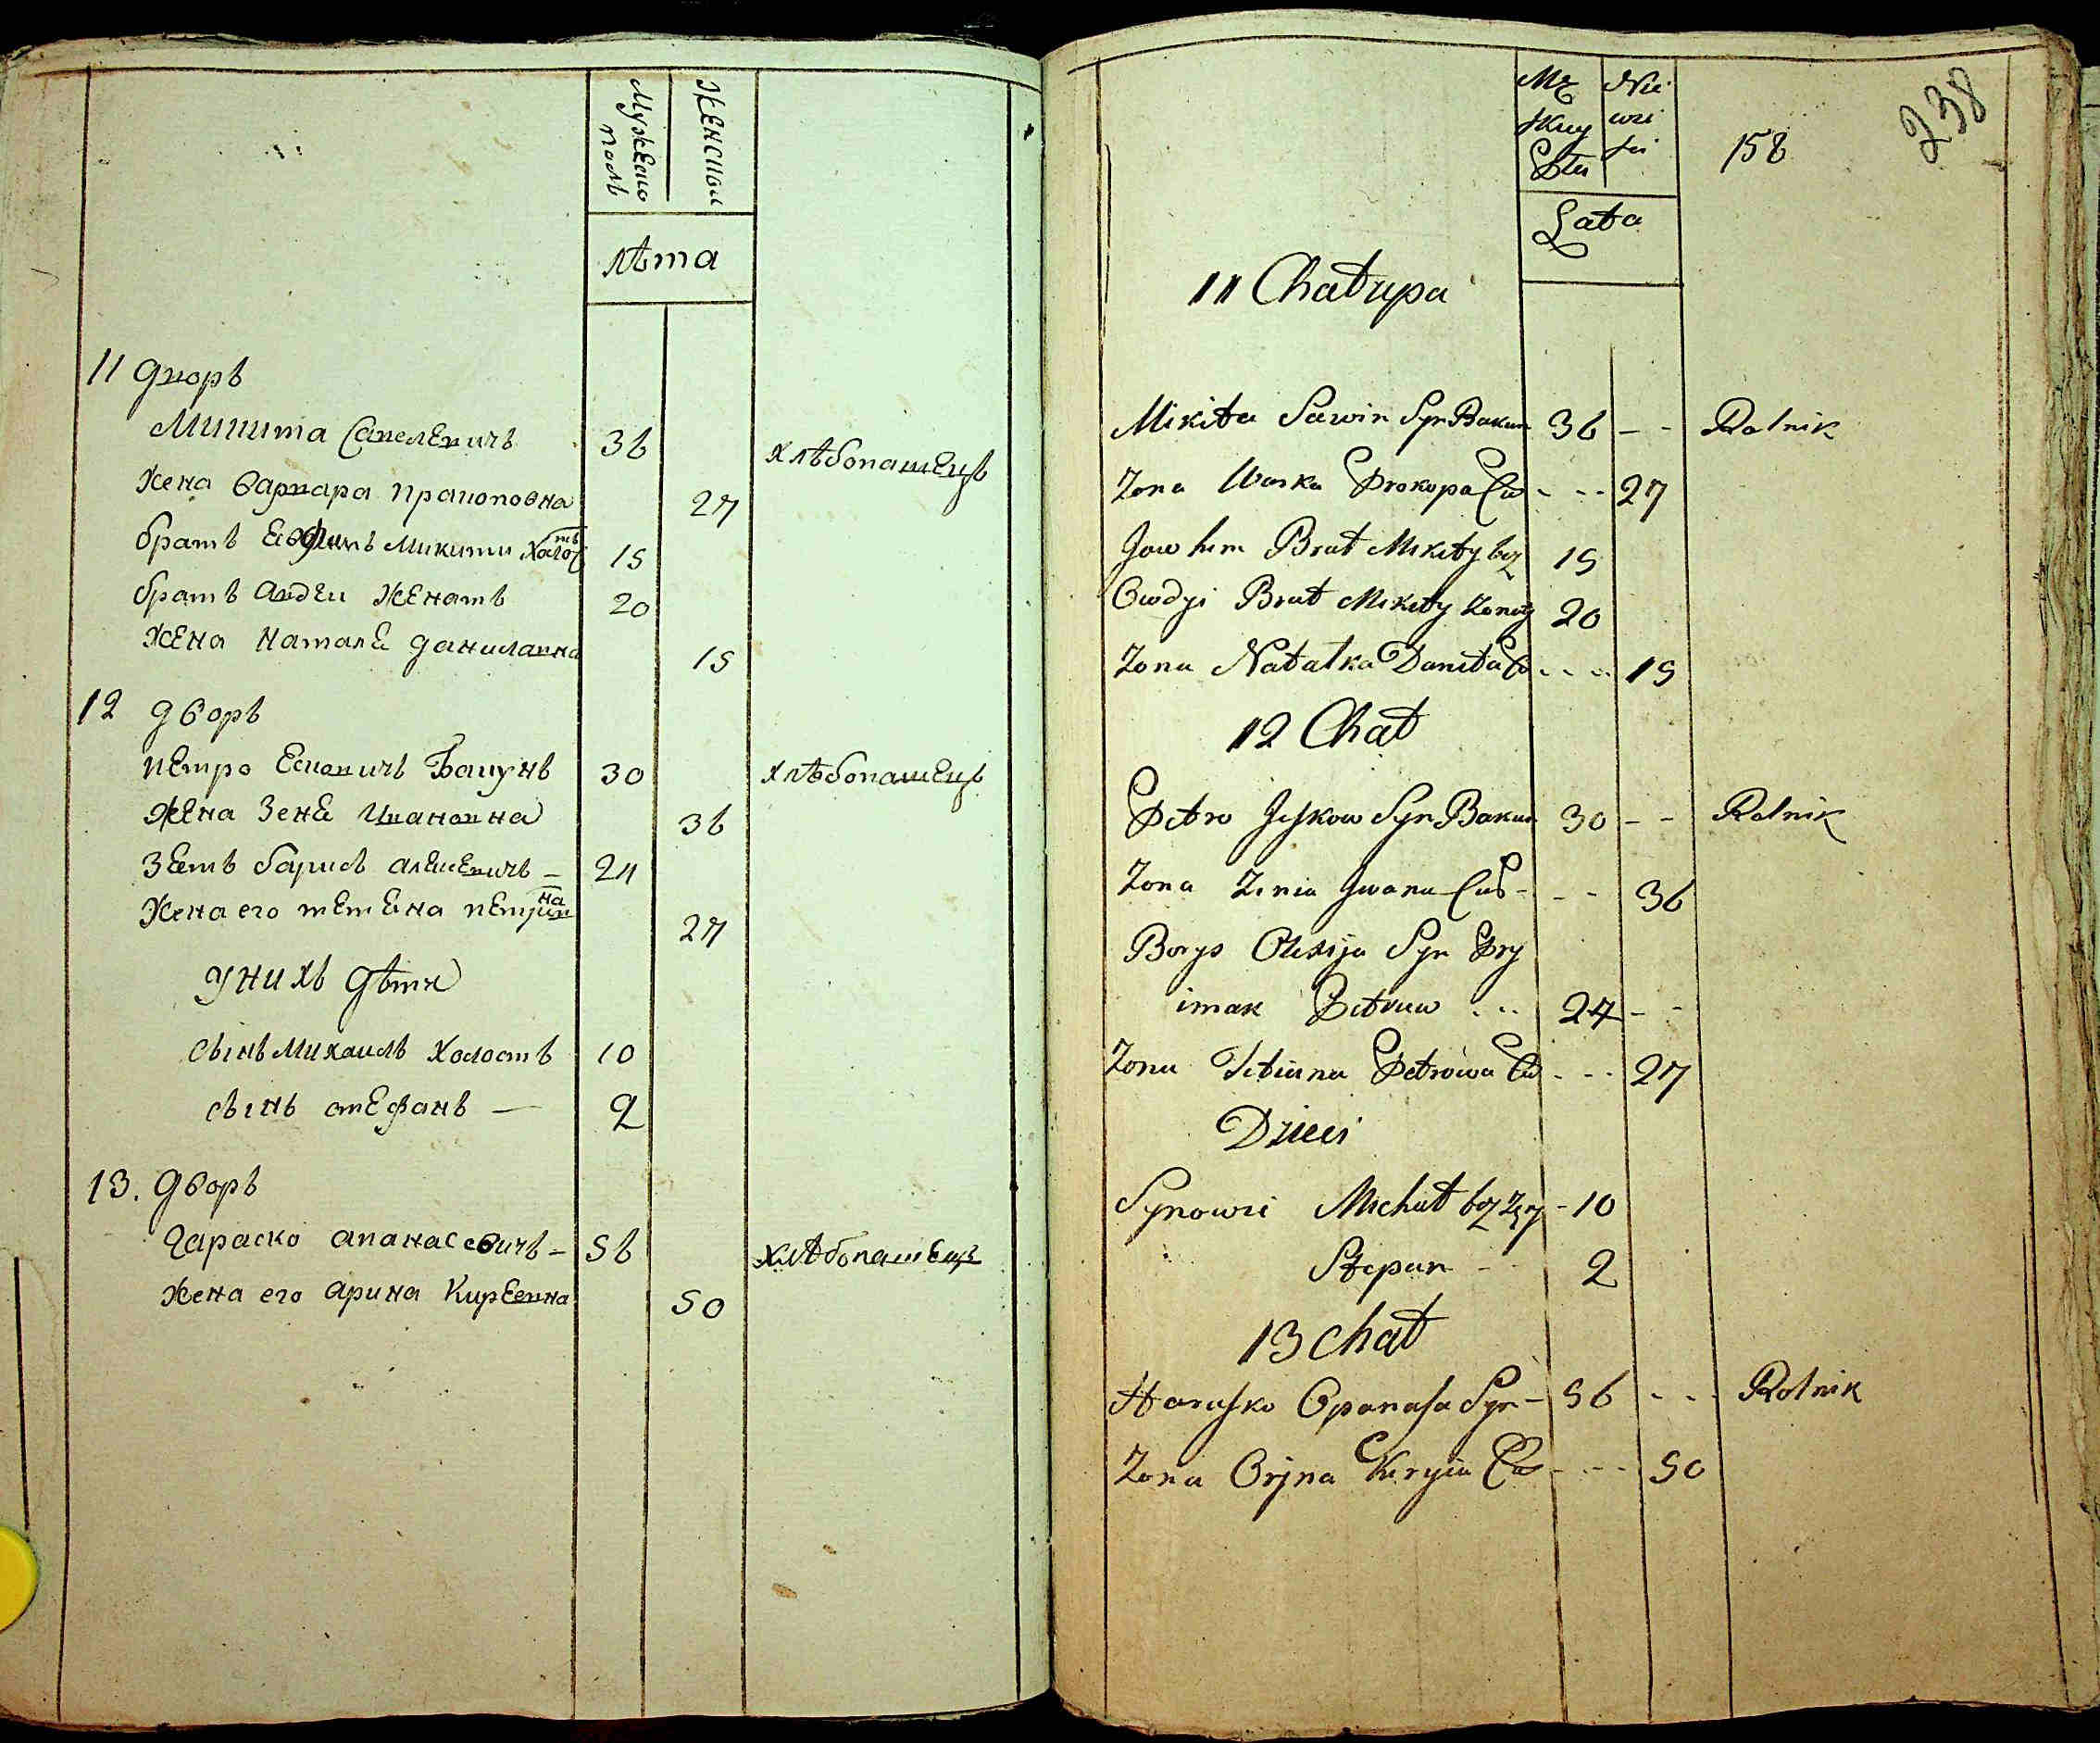 Мужеско
полъ
Женском
лѣта
11 дворъ
Микита Савелевичъ 36 хлѣбопашецъ
жена варвара прокоповна 27
братъ Евфимъ Микити холостъ 15
братъ авдеи женатъ 20
жена наталѣ даниловна 15
12 дворъ
петро Есковичъ Бакунъ 30 хлѣбопашецъ
жена Зенѣ Ивановна 36
Зеть борисъ алексевичъ – 24
жена его тетѣна петровна 27
у нихъ дѣти
сынъ михаилъ холостъ 10
сынъ стефанъ — 2
13. дворъ
гараско апанассовичъ – 56 хлѣбопашецъ
жена его арина Киреевна 50
Mę
skey
Płci
Nie
wie
ści
158
238
Lata
11 Chałupa
Mikita Sawin Syn Bakun 36 – – Rolnik
Zona Warka Prokopa Cór - - - 27
Jow him Brat Mikity bez 15
Owdyi Brat Mikity Zonaty 20
Zona Natalka Daniła Có - - - - 15
12 Chał
Petro Jeskow Syn Bakun 30 – – Rolnik
Zona Zenia Jwana Cór - - - 36
Borys Oleksija Syn Pry
imak Petruw . . . 24 – -
Zona Tetiana Petrowa Có - - - 27
Dzieci
Synowie Michał bez Zen - 10
Stepan - - 2
13 chał
Harasko Opanasa Syn – 56 - - - Rolnik
Zona Oryna Kiryia Có - - - - 50